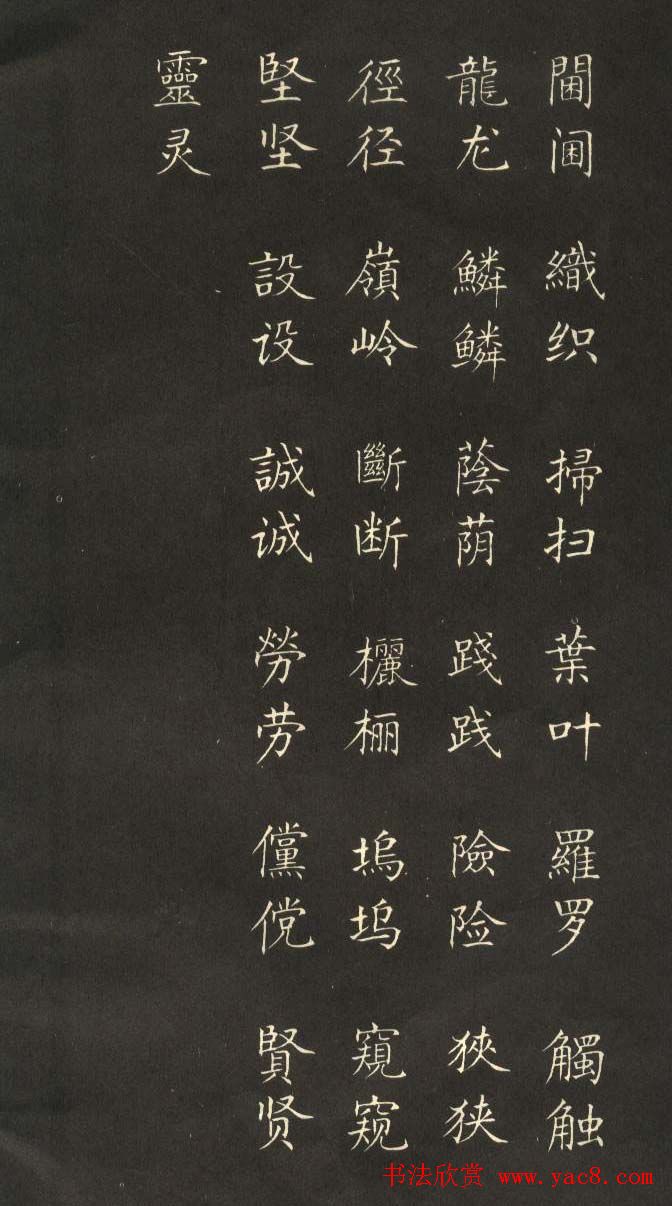 閫阃 織织 掃扫 葉叶 羅罗 觸触
龍龙 鱗鳞 蔭荫 踐践 險险 狹狭
徑径 嶺岭 斷断 欐 塢坞 窺窥
堅坚 設设 誠诚 勞劳 儻傥 賢贤
靈灵
书法欣赏 www.yac8.com